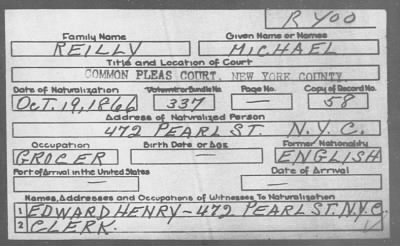 R 400
Family Name Given Name or Names
REILLY MICHAEL
Title and Location of Court
COMMON PLEAS COURT, NEW YORK COUNTY
Date of Naturalization Volume or Bundle No. Page No. Copy of Record No.
OCT. 19, 1866 337 — 58
Address of Naturalized Person
472 PEARL ST. N.Y.C.
Occupation Birth Date or Age Former Nationality
GROCER — ENGLISH
Port of Arrival in the United States Date of Arrival
— —
Names, Addresses and Occupations of Witnesses To Naturalization
1 EDWARD HENRY - 472 PEARL ST. N.Y.C.
2 CLERK.